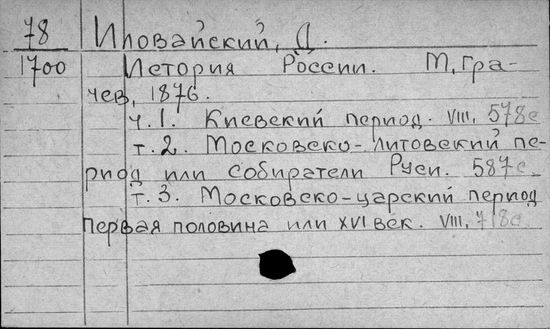 78 Иловайский, Д.
1700 История России. М, Гра-
чев, 1876.
ч.1. Киевский период. VIII, 578с
т.2. Московско-литовский пе-
риод или собиратели Руси. 587с.
т.3. Московско-царский период
первая половина или XVI век. VIII, 718с